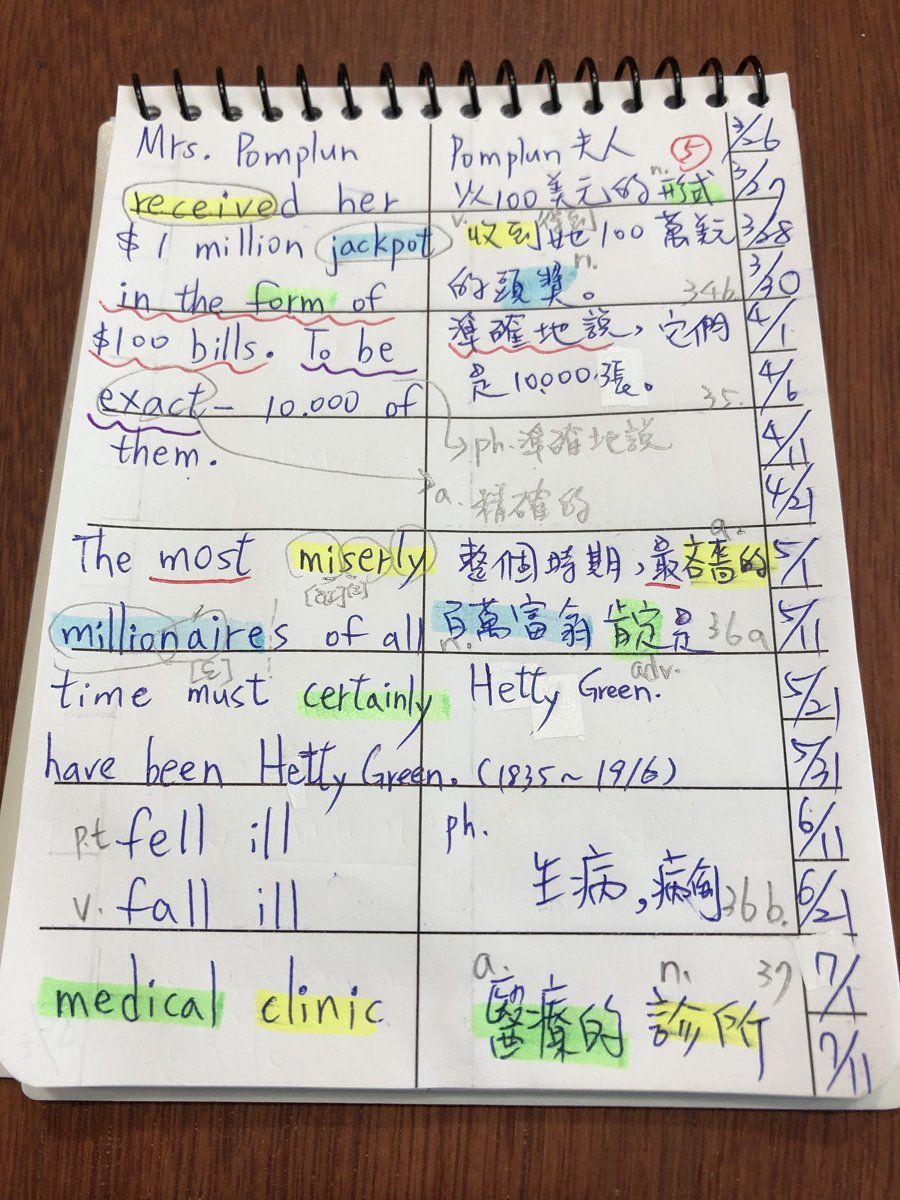 Mrs. Pomplun
received her
$1 million jackpot
in the form of
$100 bills. To be
exact - 10.000 of
them.
Pomplun夫人 ⑤
n.
以100美元的形式
v. 得到
收到她100萬美元
n.
的頭獎。 34b.
準確地說,它們
是10.000張。 35.
ph.準確地說
a.精確的
The most miserly
millionaires of all
[ɛ]
time must certainly
have been Hetty Green. (1835~1916)
a.
整個時期,最吝嗇的
百萬富翁肯定是 36a
n. adv.
Hetty Green.
p.t fell ill
v. fall ill
ph.
生病,病倒 36b.
medical clinic
a. n. 37
醫療的 診所
3/26
3/27
3/28
3/30
4/1
4/6
4/11
4/21
5/1
5/11
5/21
5/31
6/11
6/21
7/1
7/11